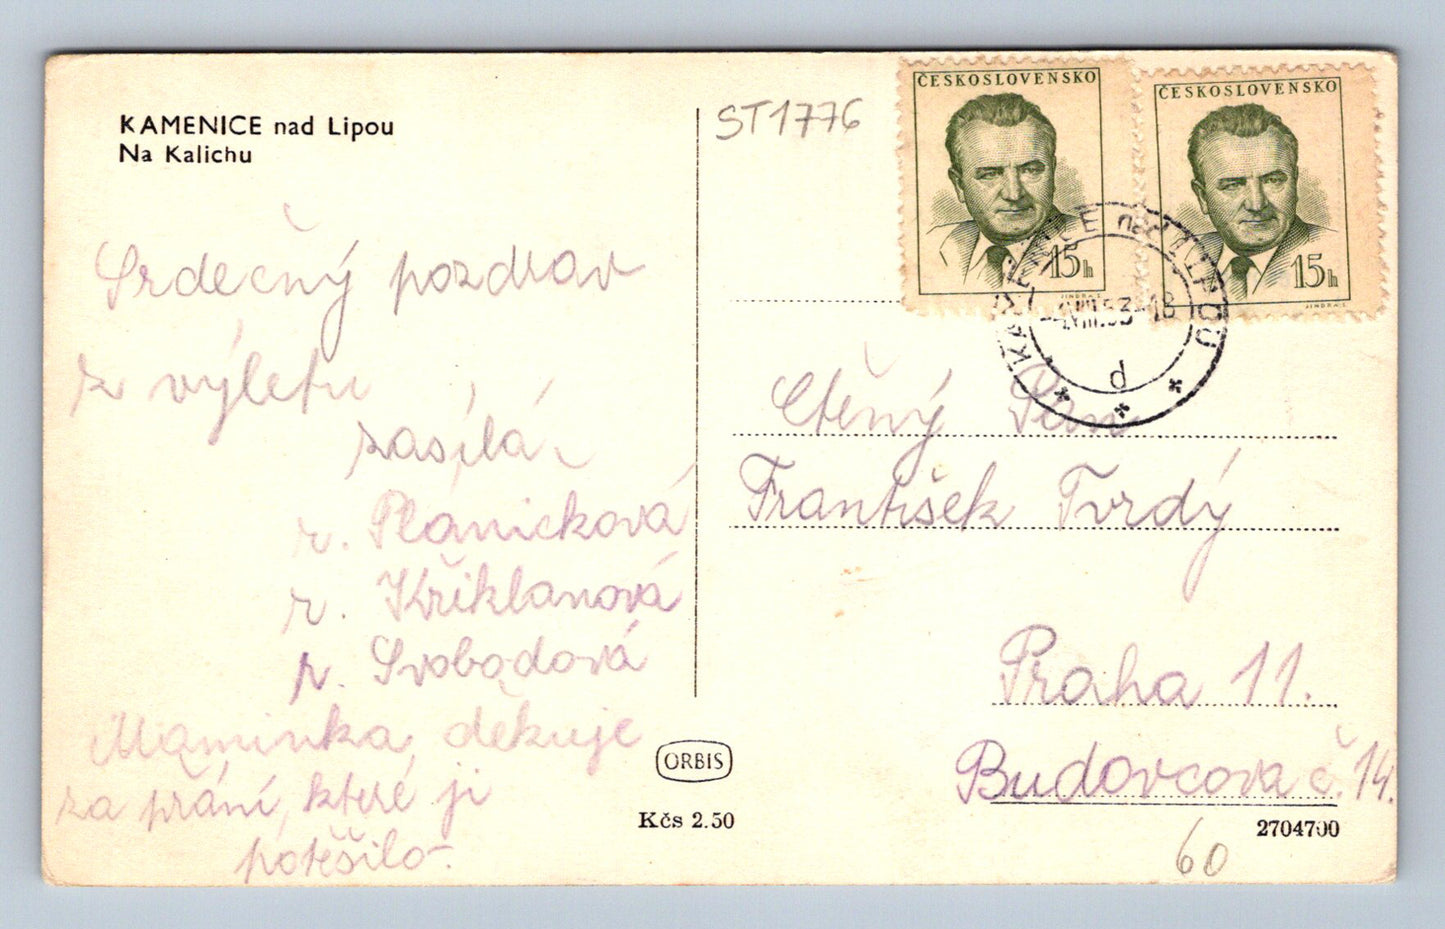 KAMENICE nad Lipou
Na Kalichu
ST1776
ČESKOSLOVENSKO
15h
JINDRA.S.
ČESKOSLOVENSKO
15h
JINDRA.S.
KAMENICE nad LIPOU
VIII.53-18
d
Srdečný pozdrav
z výletu
zasílá
r. Pláničková
r. Křiklanová
r. Svobodová
Maminka děkuje
za přání, které ji
potěšilo.
Ctěný Pan
František Tvrdý
Praha 11.
Budovcova č. 14.
ORBIS
Kčs 2.50
2704700
60